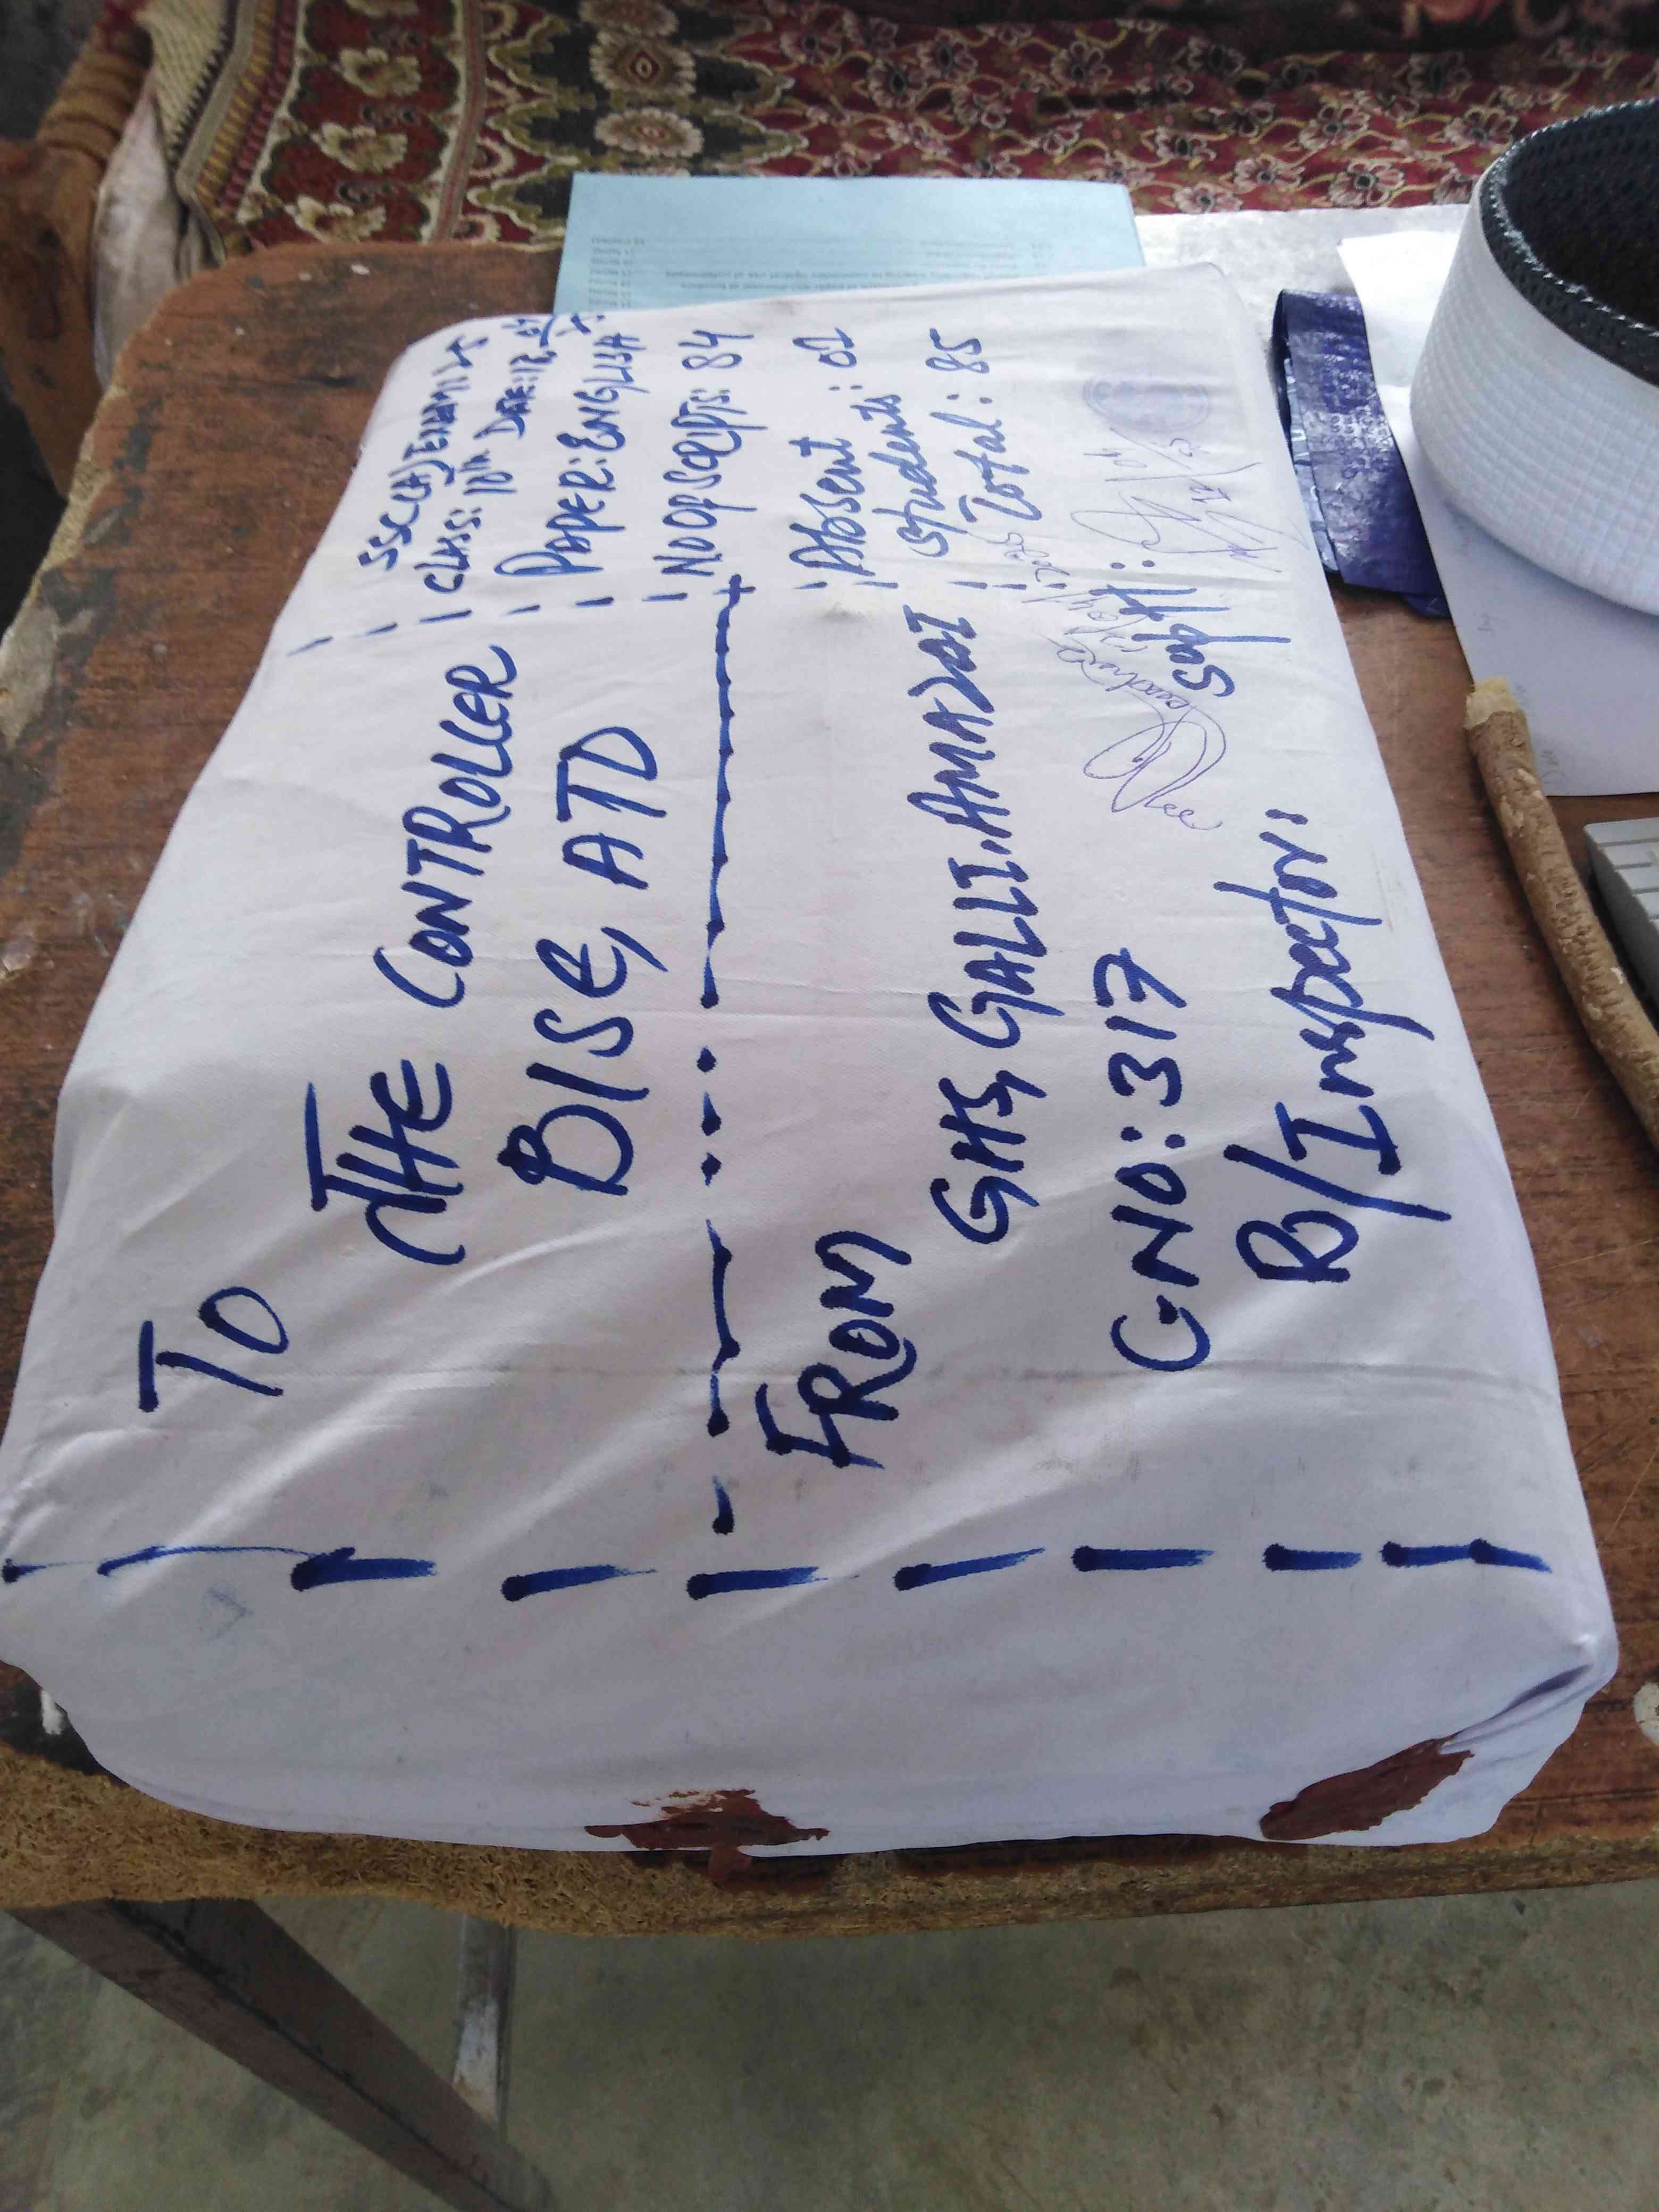 TO
THE CONTROLLER
BISE, ATD
FROM
GHS, GALLI. AMAZAI
C NO: 317
B/Inspector:
SSC(A)
CLASS: 10th DATE:
PAPER: ENGLISH
NO OF SCRIPTS: 84
Absent : 01
students
Total: 85
Supt: